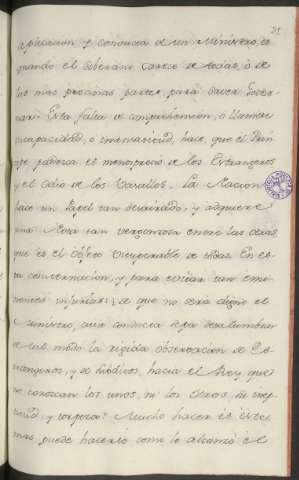 aplicacion y conducta de un Ministro, es
quando el Soberano carece de todas, ò de
las mas precisas partes para saver Gover-
nar. Esta falta de comprehension, ò llamese
incapacidad, ò internacidad, hace, que el Prin-
cipe padezca el menosprecio de los Estrangeros
y el odio de los Vasallos. La Nacion
hace un Papel tan desairado, y adquiere
una Nota tan vergonzosa entre las otras,
que es el objeto de todas. En es-
ta consternacion, y para evitar tan
injurias; de que no sera digno el
Ministro, cuia conducta sepa deslumbrar
de tal modo la rigida observacion de Es-
trangeros, y de subditos, hacia el Rey, que
no conozcan los unos, ni los otros, su inep-
titud, y torpeza? Mucho hacer es este
mas, puede hacerlo como lo alcanzó el